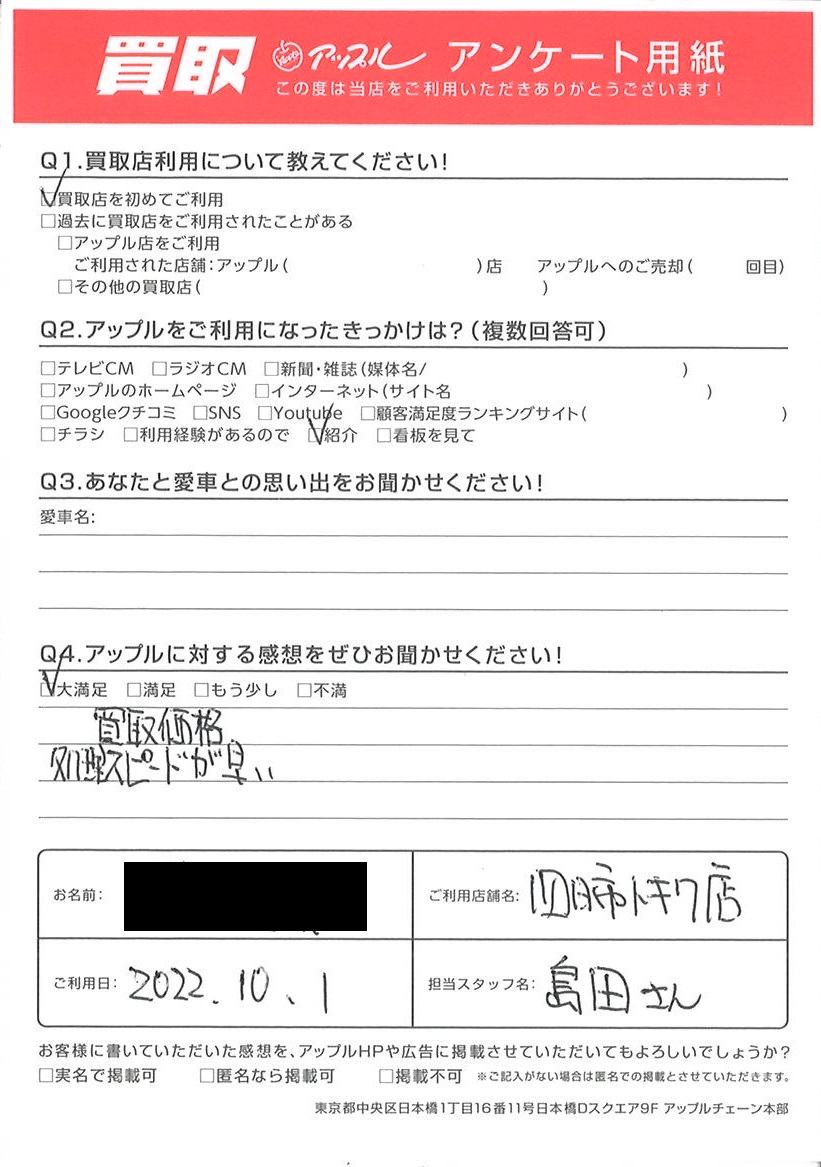 買取 アップル アンケート用紙
この度は当店をご利用いただきありがとうございます!
Q1.買取店利用について教えてください!
☑買取店を初めてご利用
□過去に買取店をご利用されたことがある
□アップル店をご利用
ご利用された店舗:アップル( )店 アップルへのご売却( 回目)
□その他の買取店( )
Q2.アップルをご利用になったきっかけは?(複数回答可)
□テレビCM □ラジオCM □新聞・雑誌(媒体名/ )
□アップルのホームページ □インターネット(サイト名 )
□Googleクチコミ □SNS □Youtube □顧客満足度ランキングサイト( )
□チラシ □利用経験があるので ☑紹介 □看板を見て
Q3.あなたと愛車との思い出をお聞かせください!
愛車名:
Q4.アップルに対する感想をぜひお聞かせください!
☑大満足 □満足 □もう少し □不満
買取価格
処理スピードが早い
お名前:
ご利用店舗名: 四日市トキワ店
ご利用日: 2022.10.1
担当スタッフ名: 島田さん
お客様に書いていただいた感想を、アップルHPや広告に掲載させていただいてもよろしいでしょうか?
□実名で掲載可 □匿名なら掲載可 □掲載不可 ※ご記入がない場合は匿名での掲載とさせていただきます。
東京都中央区日本橋1丁目16番11号日本橋Dスクエア9F アップルチェーン本部